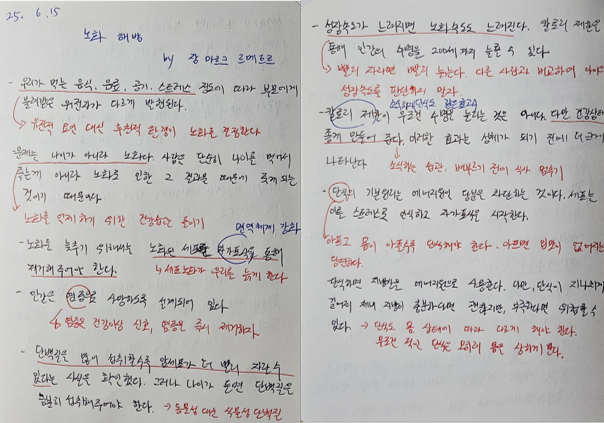 25. 6. 15
노화 해방
by 장 마르크 르메트르
- 우리가 먹는 음식, 음료, 공기, 스트레스 정도에 따라 부모에게
물려받은 유전자가 다르게 발현된다.
→ 유전적 요인 대신 후천적 환경이 노화를 결정한다
- 문제는 나이가 아니라 노화다. 사람은 단순히 나이를 먹어서
죽는게 아니라 노화로 인한 그 결과 때문에 죽게 되는
것이기 때문이다
노화를 억제하기 위한 건강습관 들이기
면역체계 강화
- 노화를 늦추기 위해서는 노화된 세포를 자가포식을 통해
제거해주어야 한다.
↳ 세포노화가 우리를 늙게 한다
- 인간은 염증을 수반하도록 설계되어 있다
↳ 염증은 건강이상 신호, 염증은 즉시 제거하자
- 단백질은 많이 섭취할수록 암세포가 더 빨리 자랄 수
있다는 사실을 확인했다. 그러나 나이가 들면 단백질을
충분히 섭취해주어야 한다. → 동물성 대신 식물성 단백질
- 성장속도가 느려지면 노화속도도 느려진다. 칼로리 제한을
통해 인간의 수명을 200세까지 늘릴 수 있다
→ 빨리 자라면 빨리 늙는다. 다른 사람과 비교하여 아이
성장속도를 판단하지 말자
- 칼로리 제한이 무조건 수명을 늘리는 것은 아니다. 다만 건강상태를
좋게 만들어 준다. 이러한 효과는 성체가 되기 전에 더 크게
나타난다
소식하는 습관, 배부르기 전에 식사 멈추기
- 단식의 기본원리는 에너지원인 당분을 차단하는 것이다. 세포는
이를 스트레스로 인식하고 자가포식을 시작한다.
아프고 몸이 아플수록 단식해야 한다. 아프면 입맛이 없어지는
당연하다.
단식하면 지방을 에너지원으로 사용한다. 다만, 단식이 지나치게
길어져 체내 지방이 충분하다면 괜찮지만, 부족하다면 위험할 수
있다 → 단식도 몸 상태에 따라 다르게 해야 한다.
무조건 적인 단식은 오히려 몸을 상하게 한다.